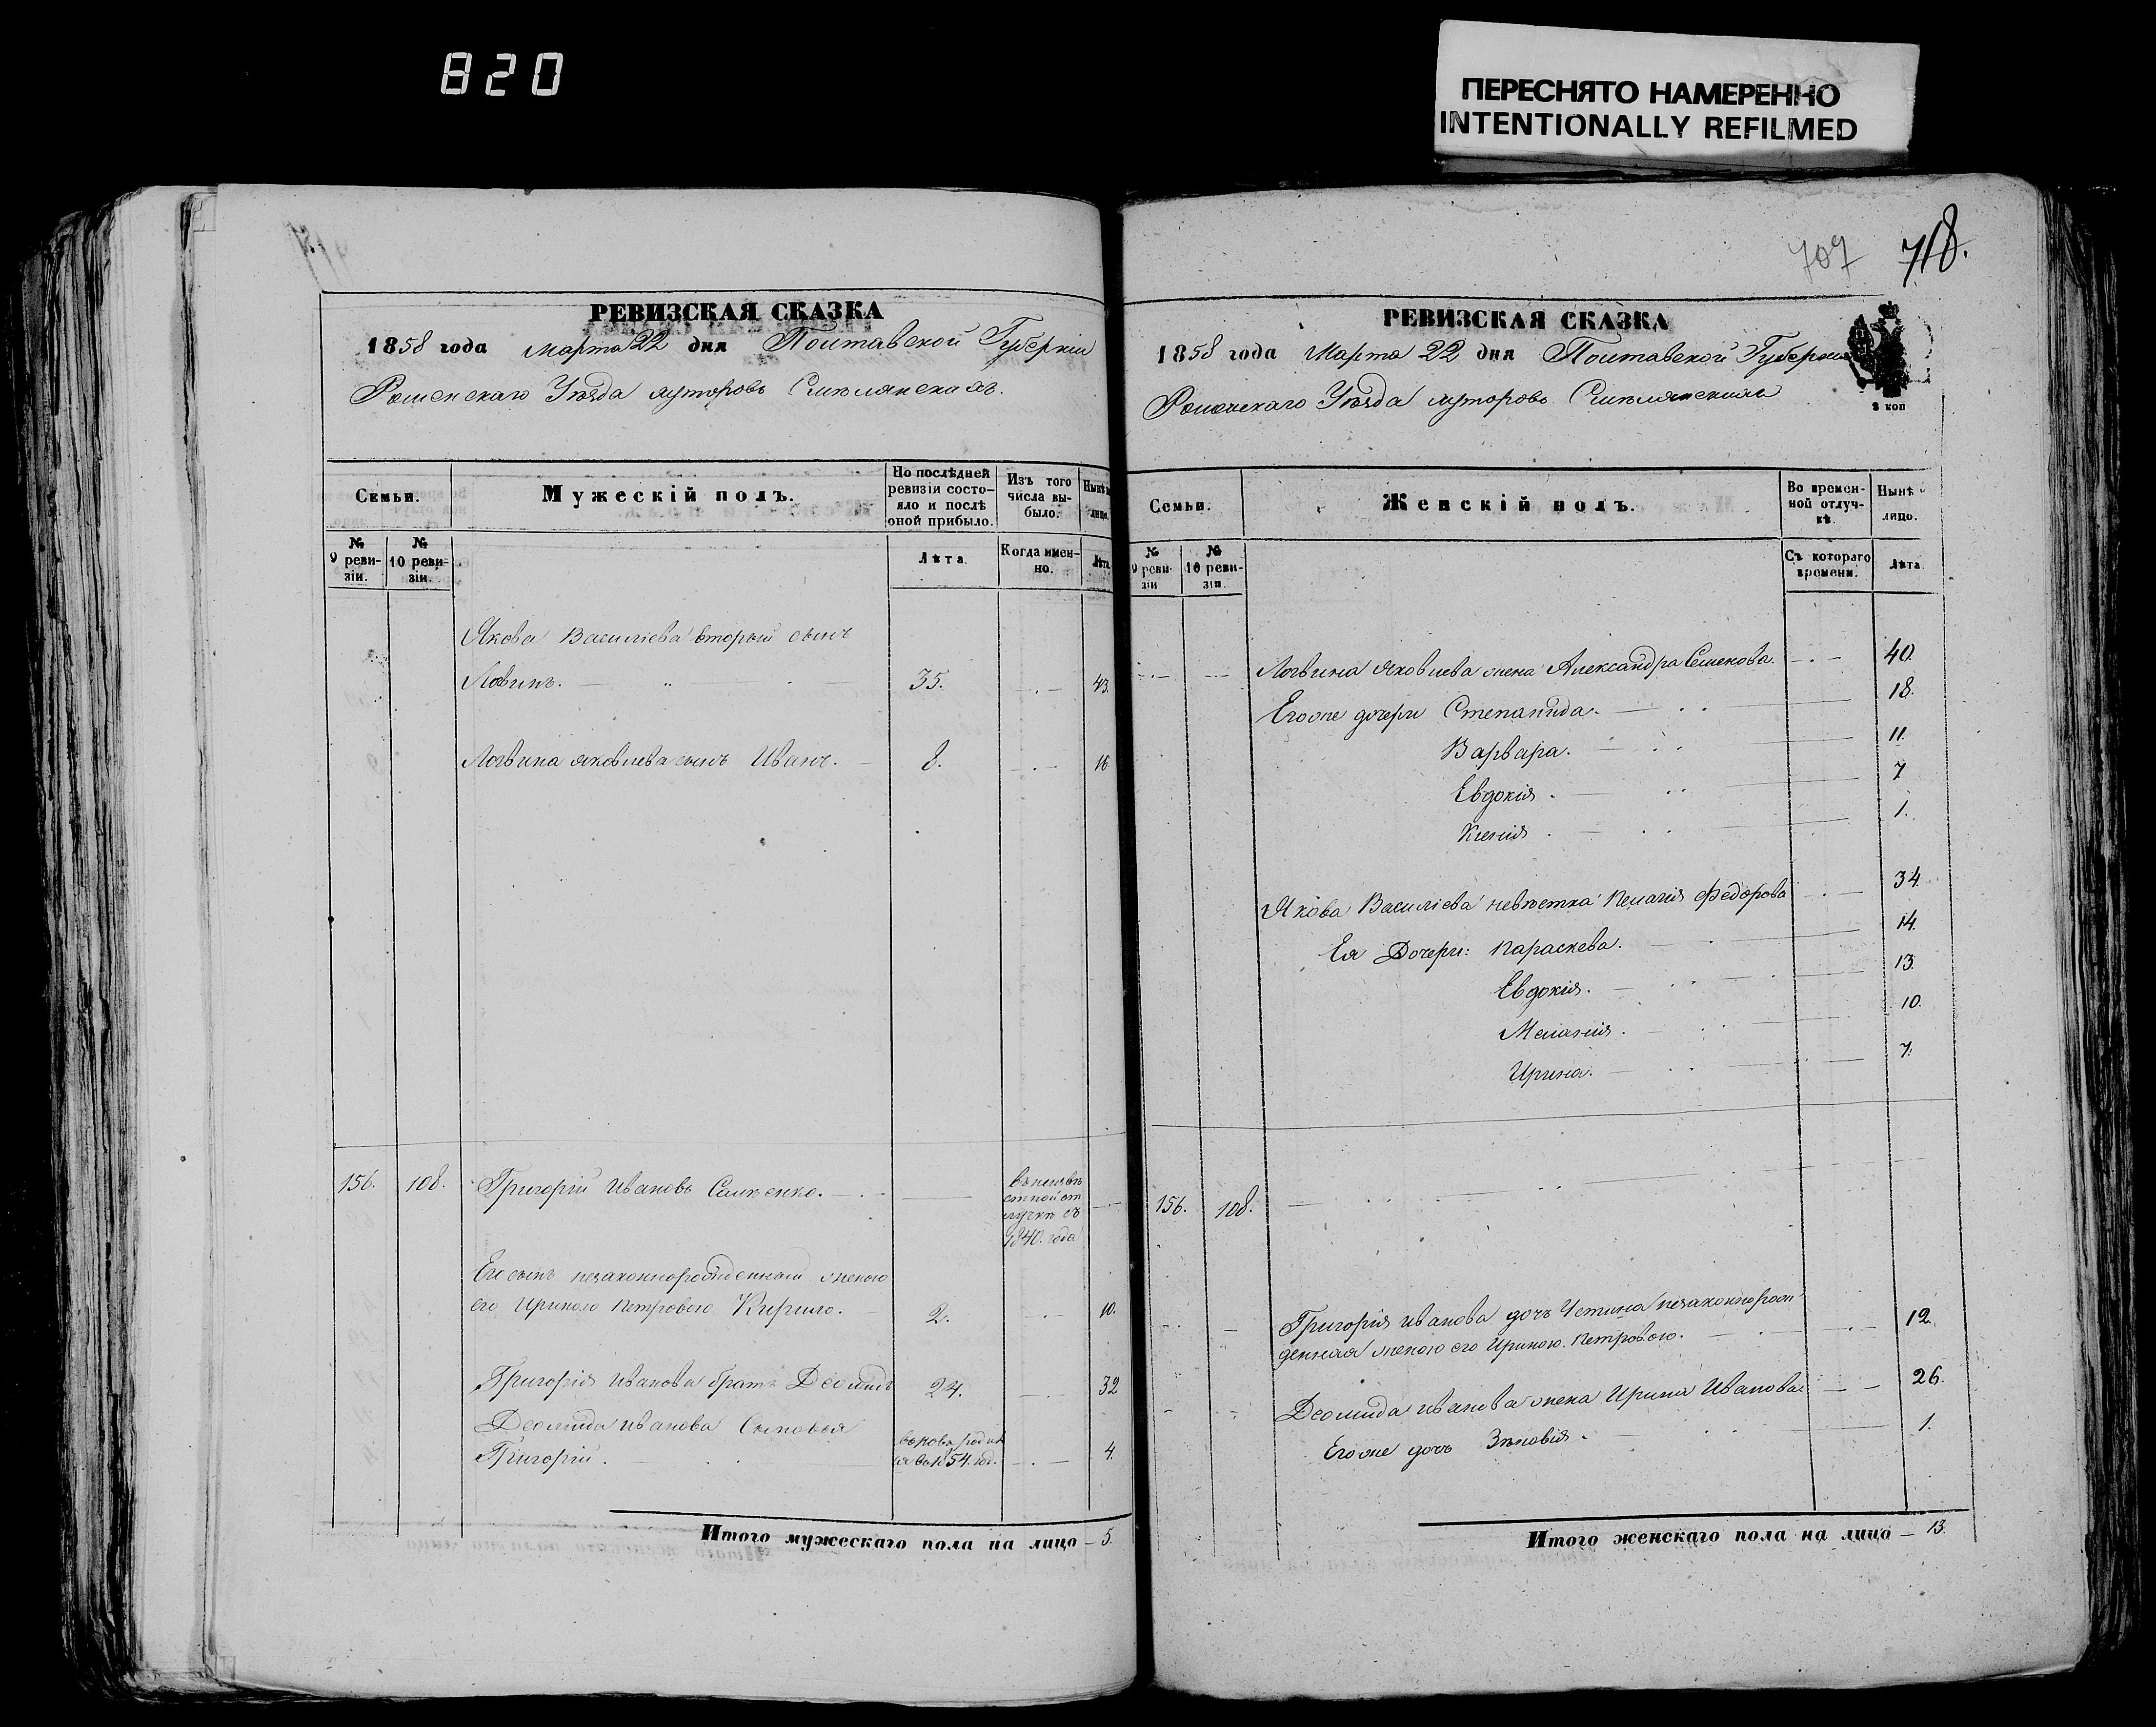 820
ПЕРЕСНЯТО НАМЕРЕННО
INTENTIONALLY REFILMED
РЕВИЗСКАЯ СКАЗКА
1858 года Марта 22 дня Полтавской Губерніи
Роменскаго Уѣзда хуторовъ Смѣлянскихъ.
Семьи.
Мужескій полъ.
По послѣдней ревизіи состояло и послѣ оной прибыло.
Изъ того числа выбыло.
Нынѣ на лицо.
№ 9 ревизіи.
№ 10 ревизіи.
Лѣта.
Когда именно.
Лѣта.
Якова Василіева вторый сынъ
Логвинъ. 35. 43.
Логвина Яковлева сынъ Иванъ. 8. 16.
156. 108. Григорій Ивановъ
1840. года
Его сынъ незаконнорожденный женою
его Ириною Петровою Кирило. 2. 10.
Григорія Иванова братъ Деомидъ 24. 32
Деомида Иванова Сыновья
Григорій. 54. год. 4.
Итого мужескаго пола на лицо – 5.
707 718.
РЕВИЗСКАЯ СКАЗКА
1858 года Марта 22 дня Полтавской Губерніи
Роменскаго Уѣзда хуторовъ Смѣлянскихъ
коп
Семьи.
Женскій полъ.
Во временной отлучкѣ.
Нынѣ на лицо.
№ 9 ревизіи
№ 10 ревизіи
Съ котораго времени.
Лѣта.
Логвина Яковлева жена Александра Семенова. 40.
Его же дочери Степанида. 18.
Варвара. 11.
Евдокія. 7
Ксенія. 1.
Якова Василіева невѣстка Пелагія Федорова 34.
Ея Дочери: Параскева. 14.
Евдокія. 13.
Меланія. 10.
Ирина. 7.
156. 108.
Григорія Иванова дочь Устина незаконнорож
денная женою его Ириною Петровою. 12.
Деомида Иванова жена Ирина Иванова 26.
Его же дочь Зѣновія. 1.
Итого женскаго пола на лицо – 13.